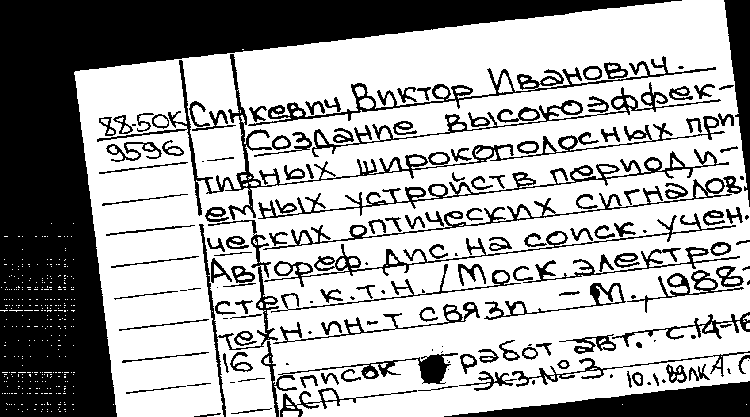 88-50К Синкевич, Виктор Иванович.
9596 Создание высокоэффек-
тивных широкополосных при-
емных устройств периоди-
ческих оптических сигналов:
Автореф. дис. на соиск. учен.
степ. к.т.н. / Моск. электро-
техн. ин-т связи. – М., 1988.
16 с.
Список работ авт.: с. 14-16
Экз. № 3.
ДСП. 10.1.89